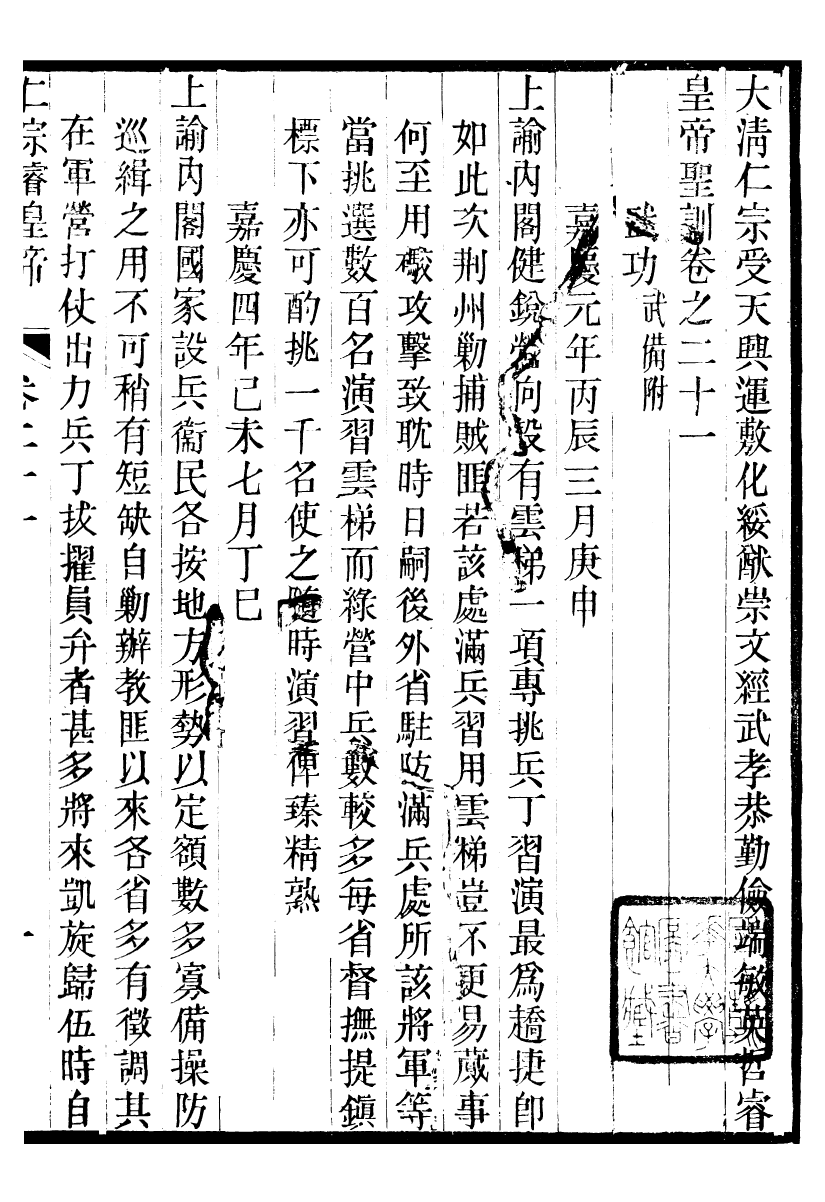 大清仁宗受天興運敷化綏猷崇文經武孝恭勤儉端敏英哲睿
皇帝聖訓卷之二十一
武功武備附
嘉慶元年丙辰三月庚申
上諭內閣健銳營向設有雲梯一項專挑兵丁習演最爲趫捷卽
如此次荆州勦捕賊匪若該處滿兵習用雲梯豈不更易蕆事
何至用礮攻擊致耽時日嗣後外省駐防滿兵處所該將軍等
當挑選數百名演習雲梯而綠營中兵數較多每省督撫提鎭
標下亦可酌挑一千名使之隨時演習俾臻精熟
嘉慶四年己未七月丁巳
上諭內閣國家設兵衞民各按地方形勢以定額數多寡備操防
巡緝之用不可稍有短缺自勦辦教匪以來各省多有徵調其
在軍營打仗出力兵丁拔擢員弁者甚多將來凱旋歸伍時自
仁宗睿皇帝 卷二十一 一